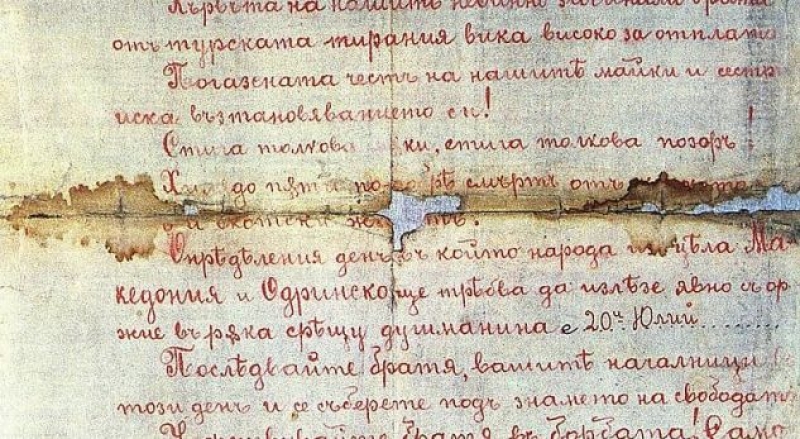 на нашитѣ невинно загинали братя
отъ турската тирания вика високо за отплата
Погазената честь на нашитѣ майки и сестри
иска възтановяванието си!
Стига толкова ки, стига толкова позоръ!
до пѫти по смърть отъ
и скотски
Опрѣдѣления день въ който народа изъ цѣла Ма
кедония и Одринско ще трѣбва да излѣзе явно съ ор
жие въ ряка срѣщу душманина е 20ч Юлий.........
Послѣдвайте братя, вашитѣ началници въ
този день и се съберете подъ знамето на свободата
братя въ борбата! Само